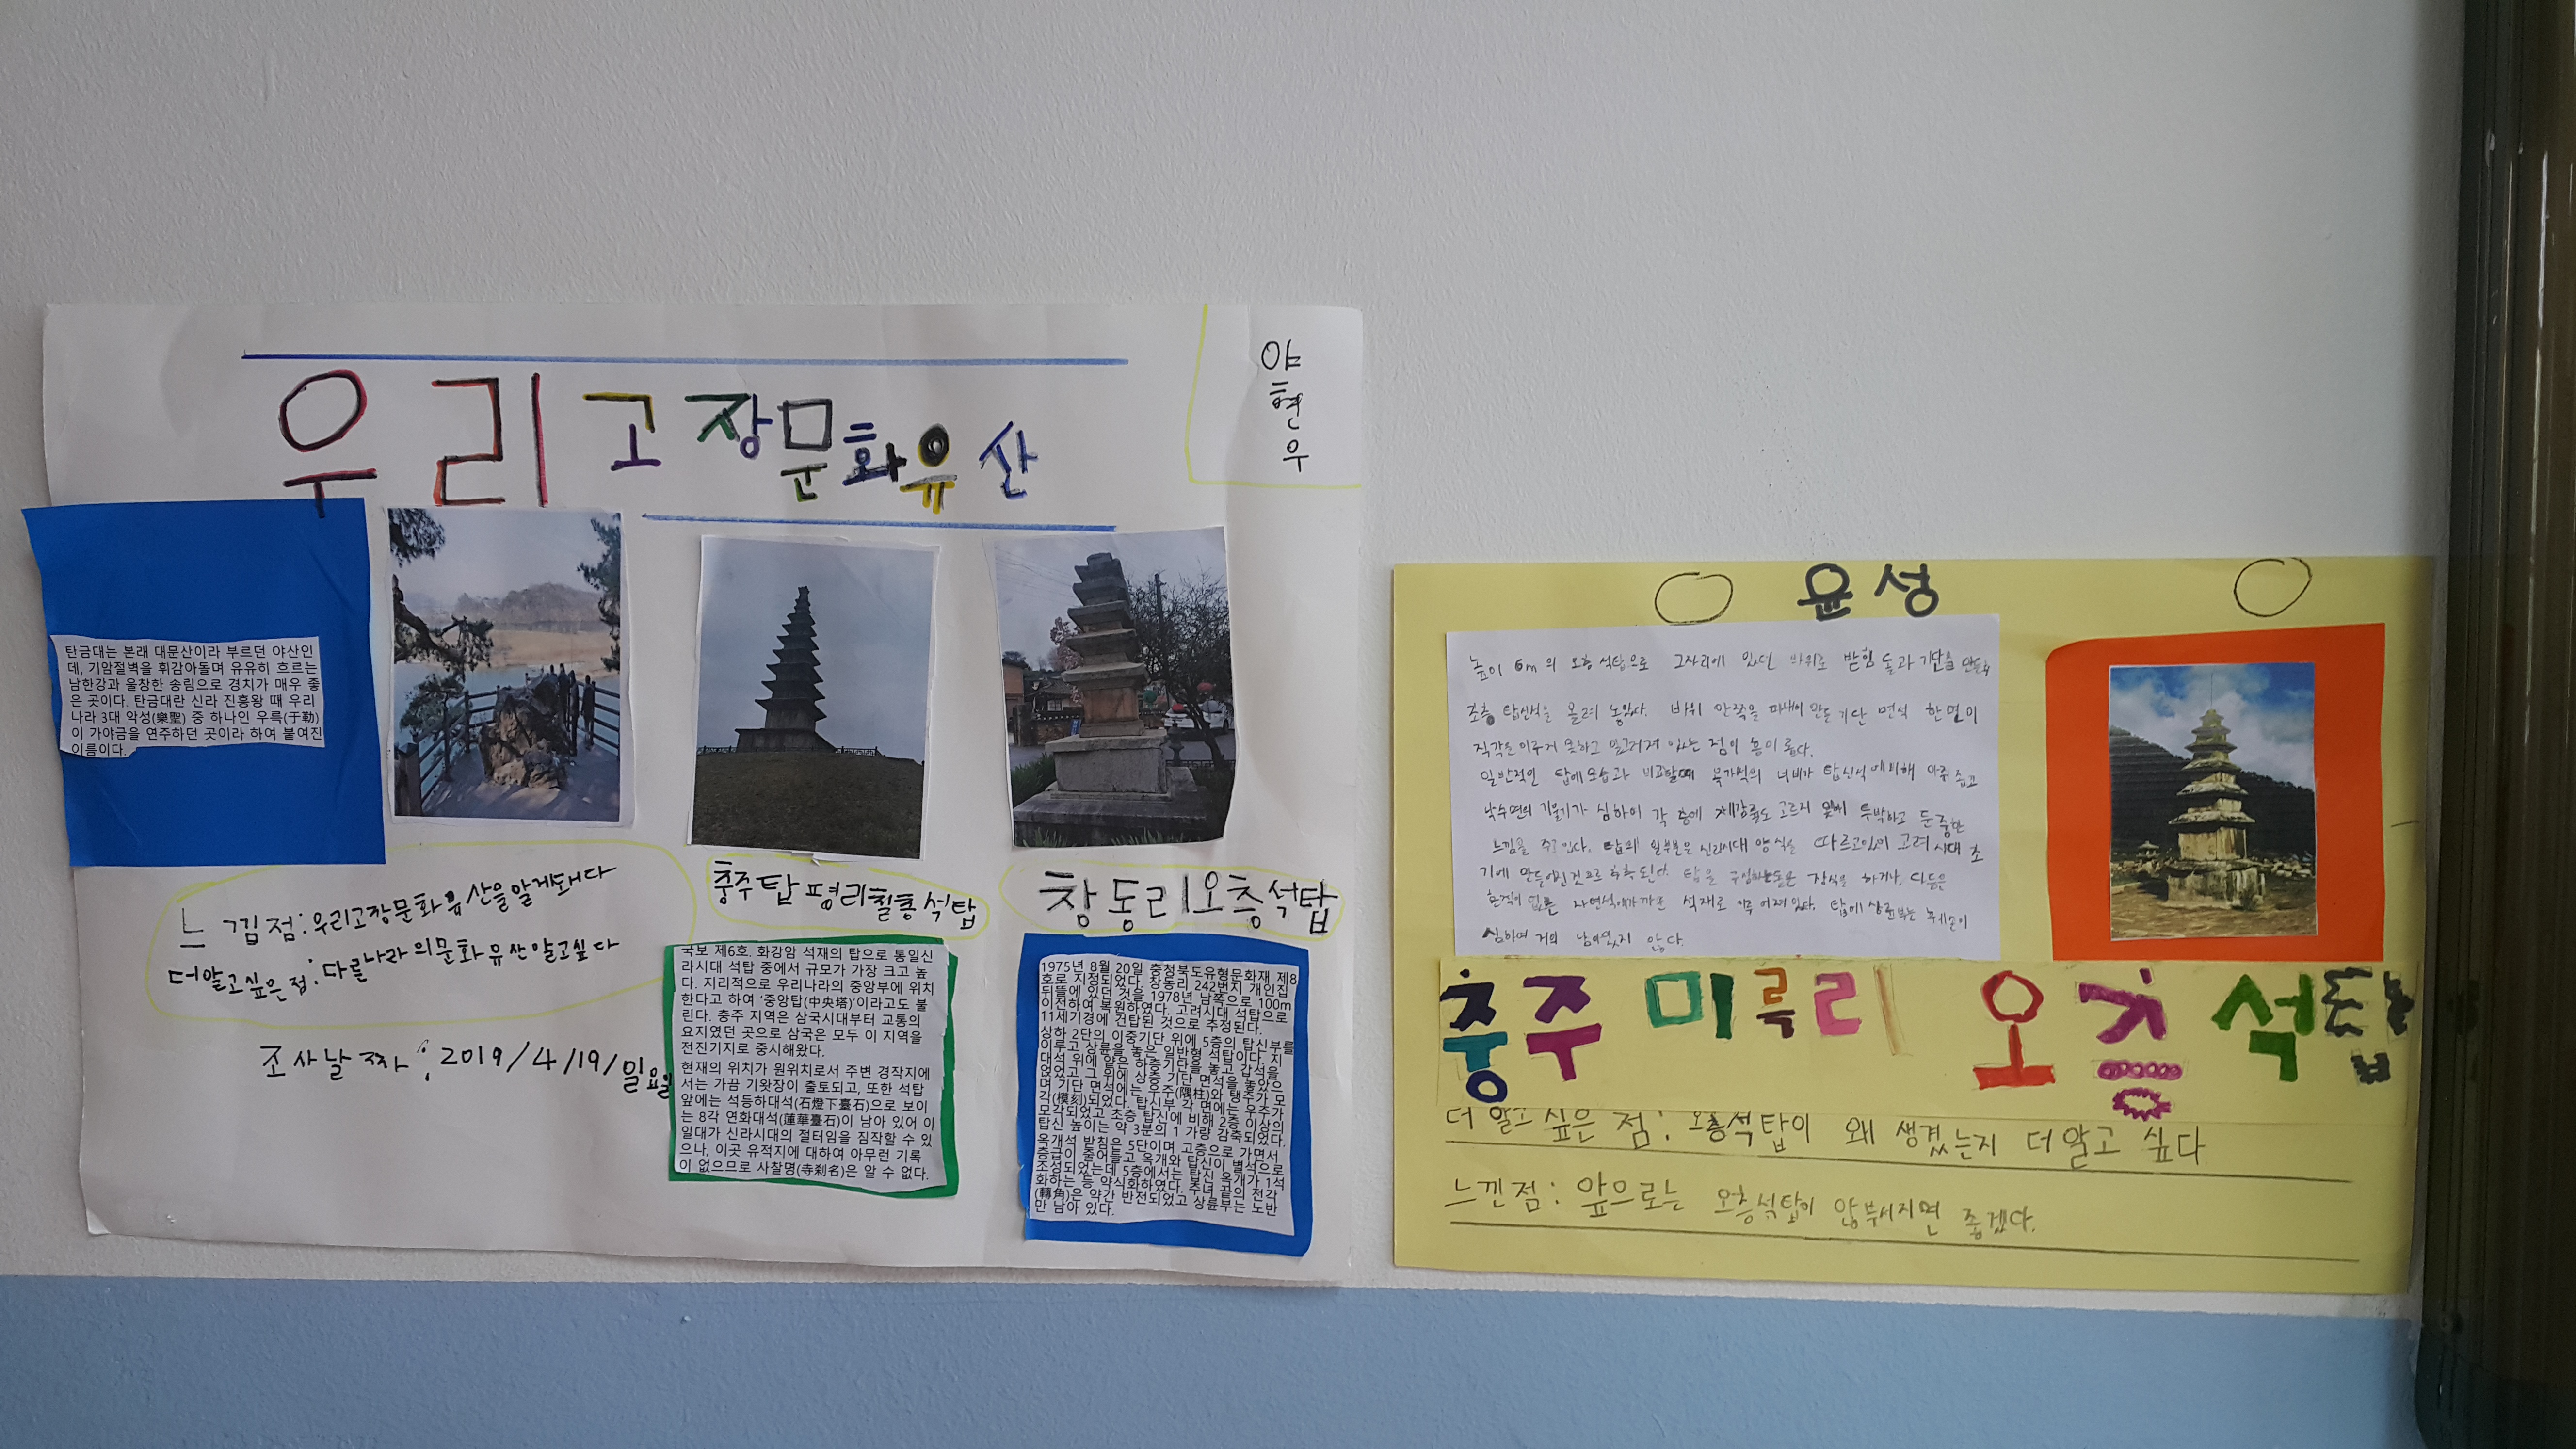 우리고장문화유산
야
현
우
탄금대는 본래 대문산이라 부르던 야산인
데, 기암절벽을 휘감아돌며 유유히 흐르는
남한강과 울창한 송림으로 경치가 매우 좋
은 곳이다. 탄금대란 신라 진흥왕 때 우리
나라 3대 악성(樂聖) 중 하나인 우륵(于勒)
이 가야금을 연주하던 곳이라 하여 붙여진
이름이다.
느낌점:우리고장문화유산을알게돼다
더알고싶은점:다를나라의문화유산알고싶다
조사날짜:2019/4/19/일요일
충주탑평리칠층석탑
국보 제6호. 화강암 석재의 탑으로 통일신
라시대 석탑 중에서 규모가 가장 크고 높
다. 지리적으로 우리나라의 중앙부에 위치
한다고 하여 '중앙탑(中央塔)'이라고도 불
린다. 충주 지역은 삼국시대부터 교통의
요지였던 곳으로 삼국은 모두 이 지역을
전진기지로 중시해왔다.
현재의 위치가 원위치로서 주변 경작지에
서는 가끔 기왓장이 출토되고, 또한 석탑
앞에는 석등하대석(石燈下臺石)으로 보이
는 8각 연화대석(蓮華臺石)이 남아 있어 이
일대가 신라시대의 절터임을 짐작할 수 있
으나, 이곳 유적지에 대하여 아무런 기록
이 없으므로 사찰명(寺刹名)은 알 수 없다.
창동리오층석탑
1975년 8월 20일 충청북도유형문화재 제8
호로 지정되었다. 창동리 242번지 개인집
뒤뜰에 있던 것을 1978년 남쪽으로 100m
이전하여 복원하였다. 고려시대 석탑으로
11세기경에 건탑된 것으로 추정된다.
상하 2단의 이중기단 위에 5층의 탑신부를
이루고 상륜을 놓은 일반형 석탑이다. 지
대석 위에 얕은 하층기단을 놓고 갑석을
얹었고 그 위에 상층 기단 면석을 놓았으
며 기단 면석에는 우주(隅柱)와 탱주가 모
각(模刻)되었다. 탑신부 각 면에는 우주가
모각되었고 초층 탑신에 비해 2층 이상의
탑신 높이는 약 3분의 1 가량 감축되었다.
옥개석 받침은 5단이며 고층으로 가면서
층급이 줄어들고 옥개와 탑신이 별석으로
조성되었는데 5층에서는 탑신 옥개가 1석
화하는 등 약식화하였다. 추녀 끝의 전각
(轉角)은 약간 반전되었고 상륜부는 노반
만 남아 있다.
윤성
높이 6m의 오층 석탑으로 그자리에 있던 바위로 받침돌과 기단을 만들고
초층 탑신석을 올려 놓았다. 바위 안쪽을 파내어 만든 기단 면석 한면이
직각을 이루지 못하고 일그러져 있는 점이 흥미롭다.
일반적인 탑에모습과 비교할때 옥개석의 너비가 탑신석에비해 아주 좁고
낙수면의 기울기가 심하여 각 층에 체감률도 고르지 못해 투박하고 둔중한
느낌을 주고 있다. 탑의 일부분은 신라시대 양식을 따르고있어 고려 시대 초
기에 만들어진것으로 추측된다. 탑을 구성하는돌은 장식을 하거나, 다듬은
흔적이 없는 자연석에가까운 석재로 이루어져있다. 탑에 상륜부는 훼손이
심하며 거의 남아있지 않다.
충주 미륵리 오층석탑
더 알고 싶은 점: 오층석탑이 왜 생겼는지 더알고 싶다
느낀점: 앞으로는 오층석탑이 않부서지면 좋겠다.